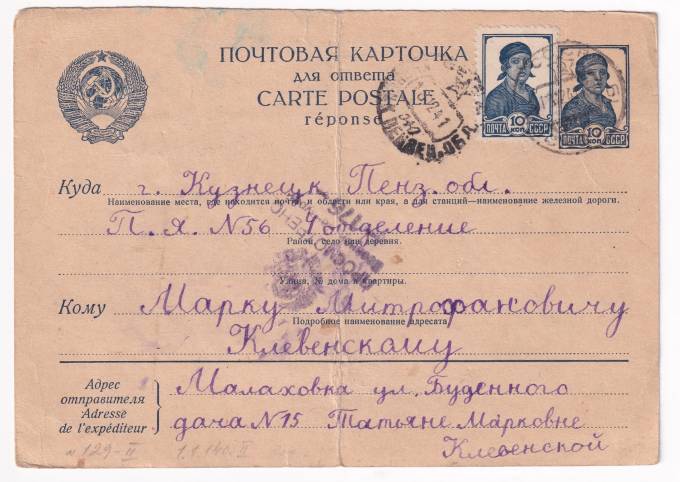 ПОЧТОВАЯ КАРТОЧКА
для ответа
CARTE POSTALE
réponse
10 КОП.
ПОЧТА СССР
10 КОП.
ПОЧТА СССР
Куда г. Кузнецк Пенз. обл.
Наименование места, где находится почта, и области или края, а для станций—наименование железной дороги.
П. Я. N 56 4 отделение
Район, село или деревня.
Улица, № дома и квартиры.
Кому Марку Митрофановичу
Подробное наименование адресата
Клевенскому
Адрес отправителя
Adresse de l'expéditeur
Малаховка ул. Буденного
дача N 15 Татьяне Марковне
Клевенской